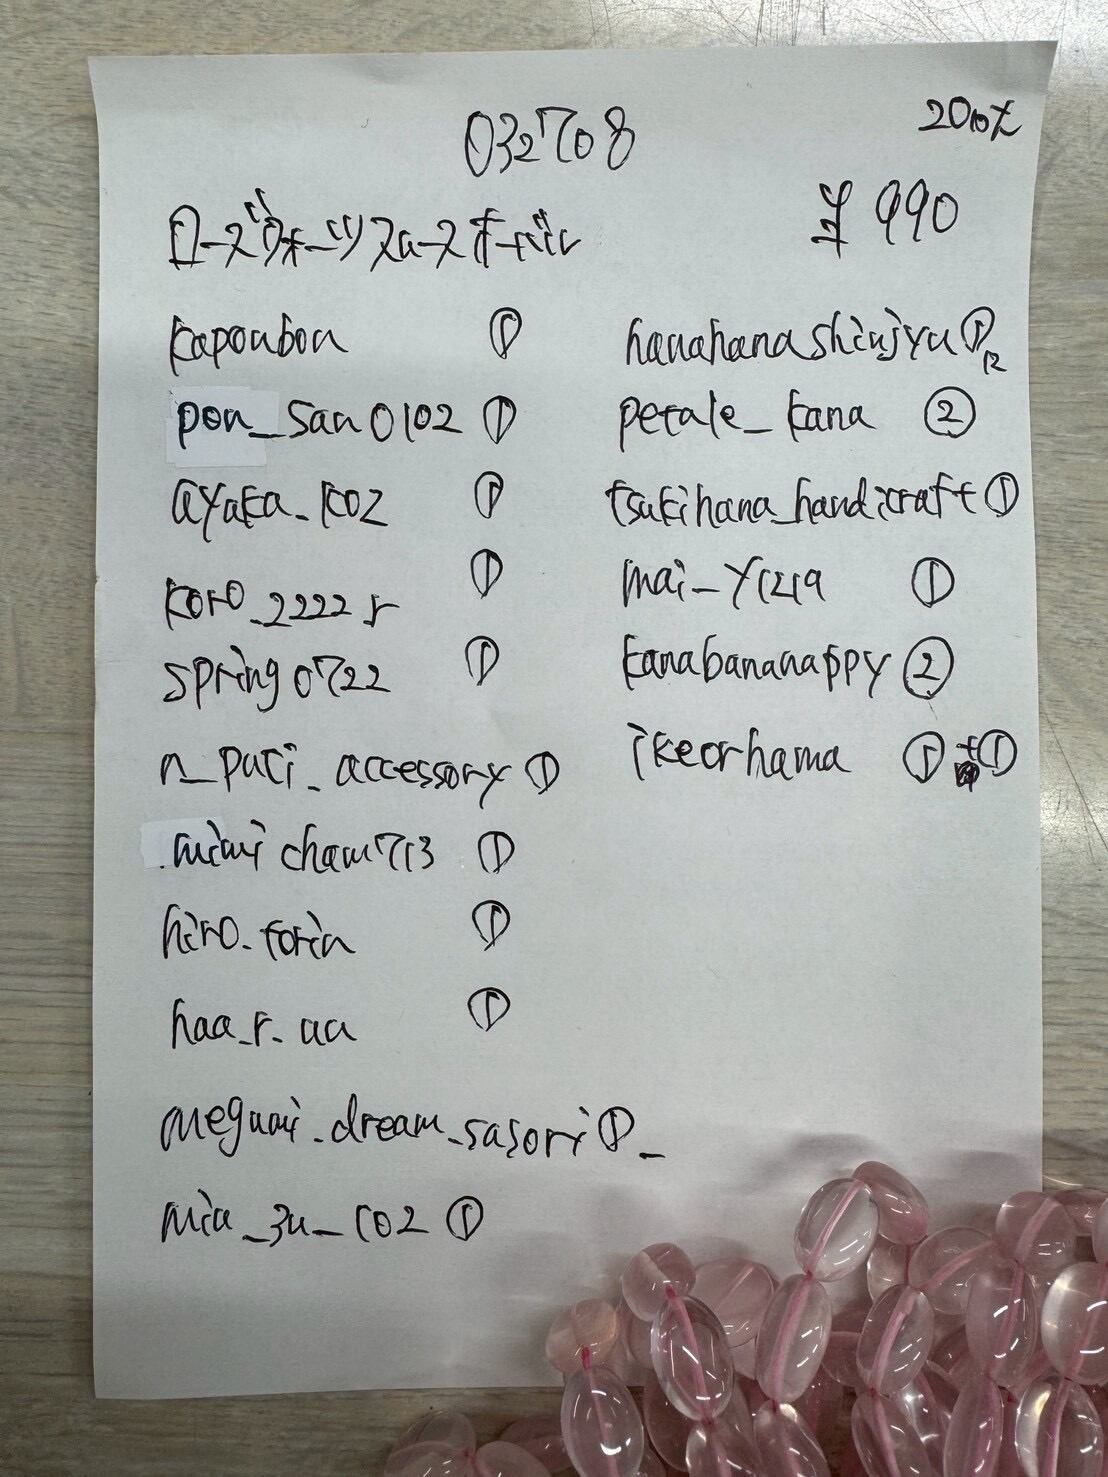 032708
20本
¥990
ローズクォーツスムースオーバル
kaponbon ①
pon_san0102 ①
ayaka_1002 ①
koro_2222r ①
spring0722 ①
n_puti_accessory ①
mimicham713 ①
hiro_torin ①
haa_r_aa ①
megumi_dream_sasori ①_
miu_3u_102 ①
hanahanashinjyu ①
12
petale_kana ②
tsukihana_handicraft ①
mai_y1219 ①
kanabananappy ②
ikeorhama ①+①